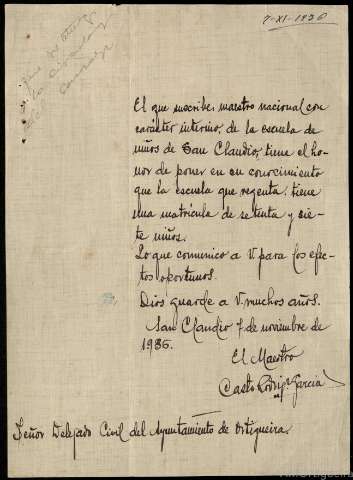 7-XI-1936
El que suscribe, maestro nacional con
carácter interino, de la escuela de
niños de San Claudio, tiene el ho-
nor de poner en su conocimiento
que la escuela que regenta, tiene
una matrícula de setenta y sie-
te niños.
Lo que comunico a V para los efec-
tos oportunos.
Dios guarde a V. muchos años.
San Claudio 7 de noviembre de
1936.
El Maestro
Casto Rodrigz Garcia
Señor Delegado Civil del Ayuntamiento de Ortigueira.